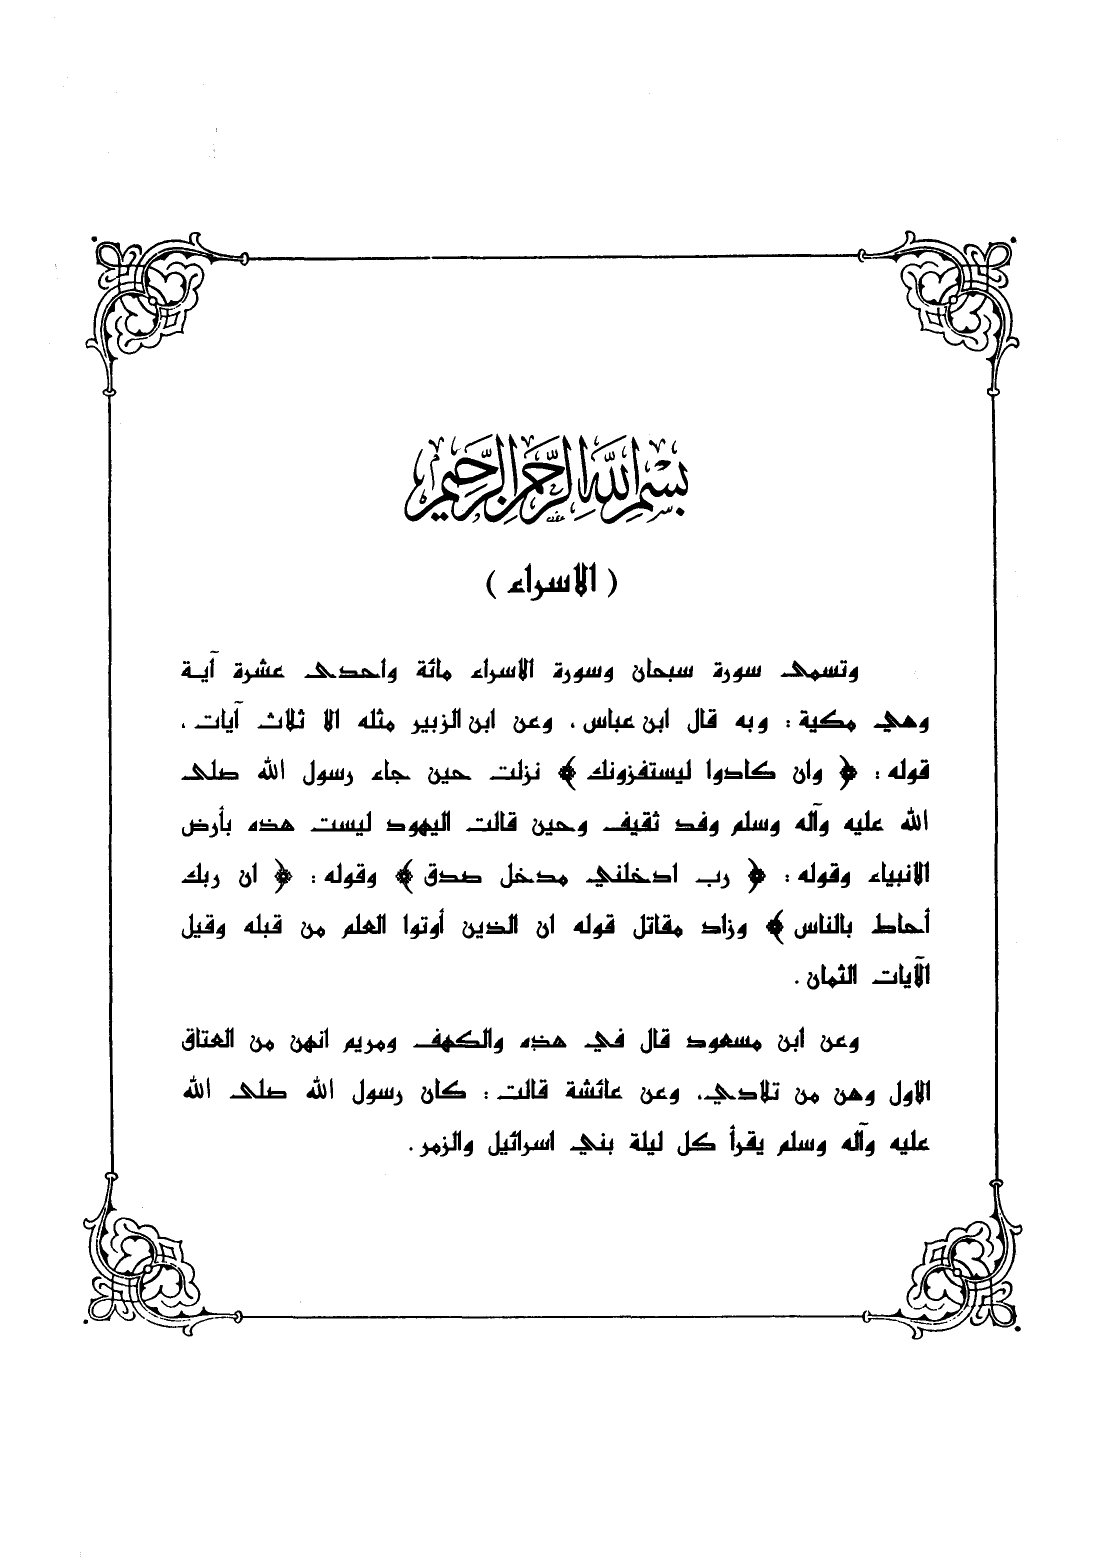 بسم الله الرحمن الرحيم
( الاسراء )
وتسمى سورة سبحان وسورة الاسراء مائة واحدى عشرة آية
وهي مكية : وبه قال ابن عباس ، وعن ابن الزبير مثله الا ثلاث آيات ،
قوله : ﴿ وان كادوا ليستفزونك ﴾ نزلت حين جاء رسول الله صلى
الله عليه وآله وسلم وفد ثقيف وحين قالت اليهود ليست هذه بأرض
الانبياء وقوله : ﴿ رب ادخلني مدخل صدق ﴾ وقوله : ﴿ ان ربك
أحاط بالناس ﴾ وزاد مقاتل قوله ان الذين أوتوا العلم من قبله وقيل
الآيات الثمان .
وعن ابن مسعود قال في هذه والكهف ومريم انهن من العتاق
الاول وهن من تلادي، وعن عائشة قالت : كان رسول الله صلى الله
عليه وآله وسلم يقرأ كل ليلة بني اسرائيل والزمر .